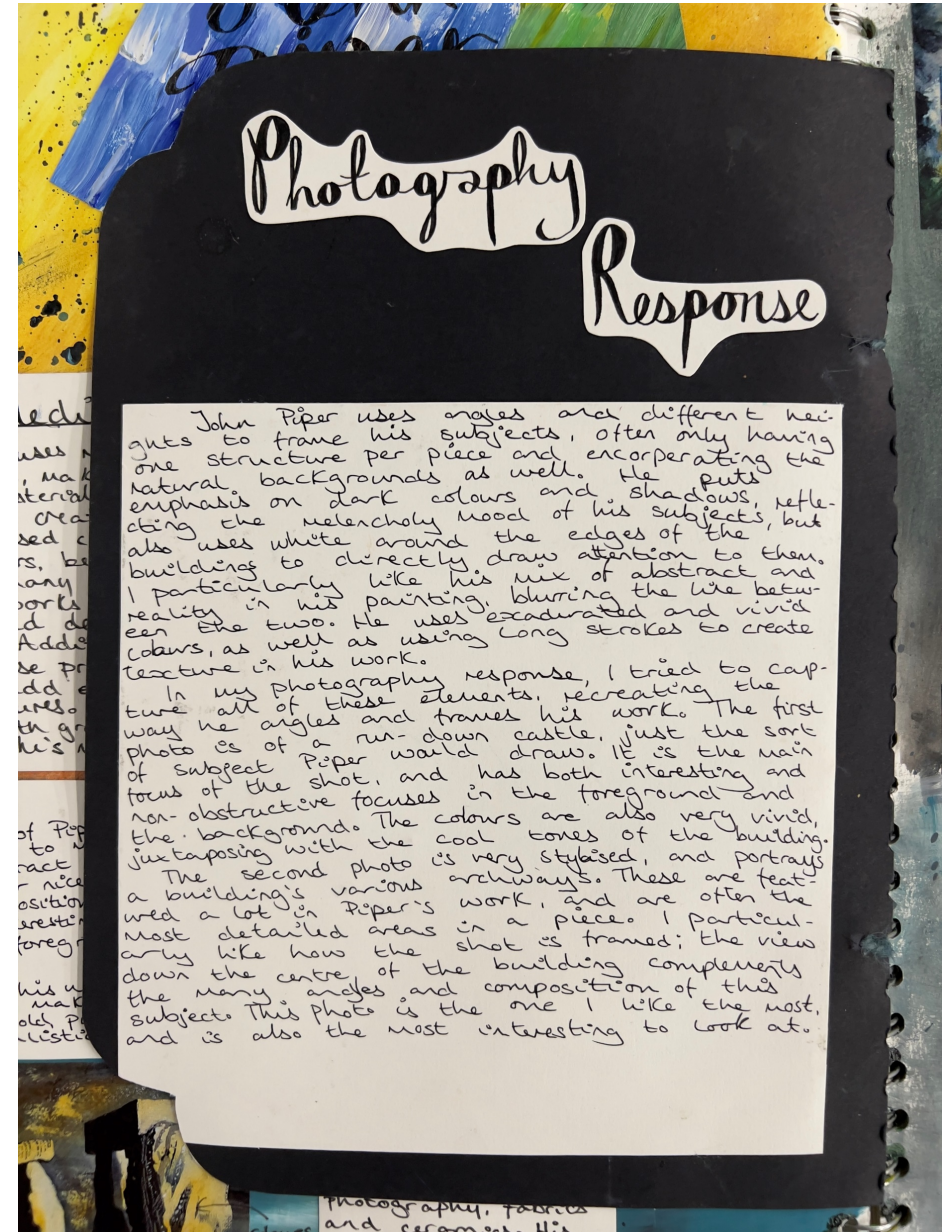 Photography
Response
John Piper uses angles and different hei-
ghts to frame his subjects, often only having
one structure per piece and encorperating the
natural backgrounds as well. He puts
emphasis on dark colours and shadows, refle-
cting the melencholy mood of his subjects, but
also uses white around the edges of the
buildings to directly draw attention to them.
I particularly like his mix of abstract and
reality in his painting, blurring the line betw-
een the two. He uses exadurated and vivid
colours, as well as using long strokes to create
texture in his work.
In my photography response, I tried to cap-
ture all of these elements, recreating the
way he angles and frames his work. The first
photo is of a run-down castle, just the sort
of subject Piper would draw. It is the main
focus of the shot, and has both interesting and
non-obstructive focuses in the foreground and
the background. The colours are also very vivid,
juxtaposing with the cool tones of the building.
The second photo is very stylised, and portrays
a building's various archways. These are feat-
ured a lot in Piper's work, and are often the
most detailed areas in a piece. I particul-
arly like how the shot is framed; the view
down the centre of the building complements
the many angles and composition of this
subject. This photo is the one I like the most,
and is also the most interesting to look at.
photography, fabrics
and ceramics. His